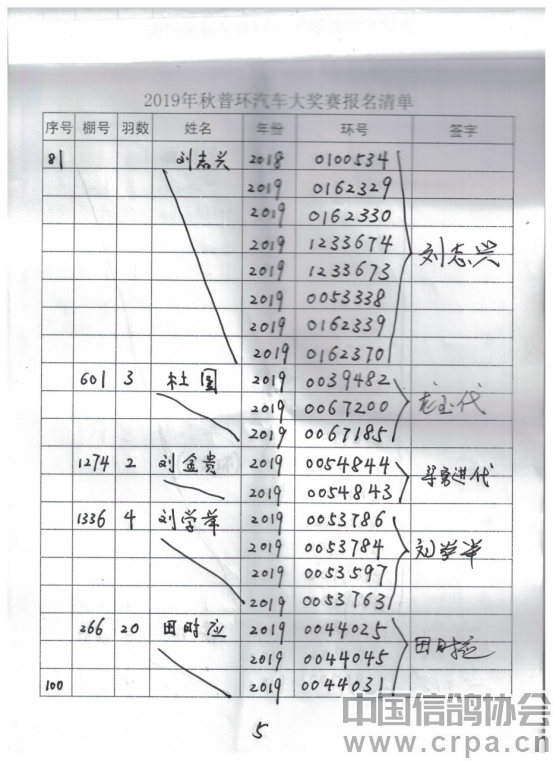 2019年秋普环汽车大奖赛报名清单
序号 棚号 羽数 姓名 年份 环号 签字
81 刘志兴 2018 0100534
2019 0162329
2019 0162330
2019 1233674
2019 1233673 刘志兴
2019 0053338
2019 0162339
2019 0162370
601 3 杜国 2019 0039482
2019 0067200
2019 0067185
1274 2 刘金贵 2019 0054844
2019 0054843
1336 4 刘学举 2019 0053786
2019 0053784 刘学举
2019 0053597
2019 0053763
266 20 田时应 2019 0044025
2019 0044045 田时应
100 2019 0044031
5
中国信鸽协会
www.crpa.cn